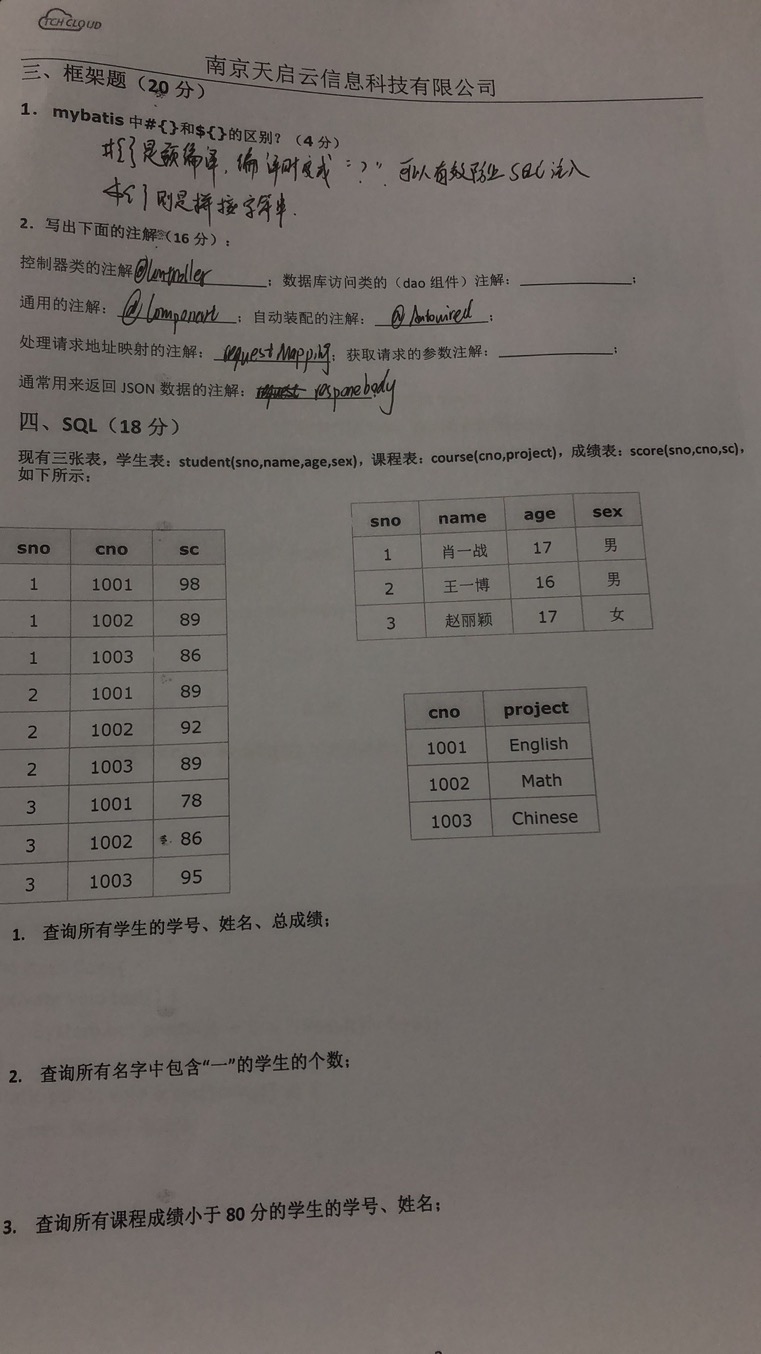 TCH CLOUD
南京天启云信息科技有限公司
三、框架题（20 分）
1. mybatis 中#{}和${}的区别？（4 分）
#{}是预编译，编译时变成 "?"，可以有效防止 SQL 注入
${}则是拼接字符串.
2. 写出下面的注解（16 分）：
控制器类的注解@Controller；数据库访问类的（dao 组件）注解：____________；
通用的注解：@Component；自动装配的注解：@Autowired；
处理请求地址映射的注解：requestMapping；获取请求的参数注解：____________；
通常用来返回 JSON 数据的注解：request responebody
四、SQL（18 分）
现有三张表，学生表：student(sno,name,age,sex)，课程表：course(cno,project)，成绩表：score(sno,cno,sc)，
如下所示：
sno cno sc
1 1001 98
1 1002 89
1 1003 86
2 1001 89
2 1002 92
2 1003 89
3 1001 78
3 1002 86
3 1003 95
sno name age sex
1 肖一战 17 男
2 王一博 16 男
3 赵丽颖 17 女
cno project
1001 English
1002 Math
1003 Chinese
1. 查询所有学生的学号、姓名、总成绩；
2. 查询所有名字中包含“一”的学生的个数；
3. 查询所有课程成绩小于 80 分的学生的学号、姓名；